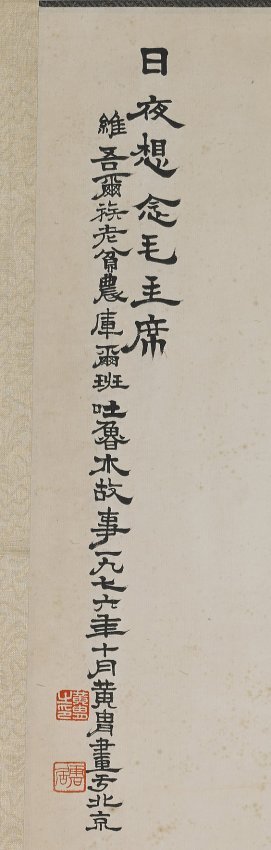 日夜想念毛主席
維吾爾族老貧農庫爾班吐魯木故事一九七六年十月黃冑畫于北京
黃冑之印